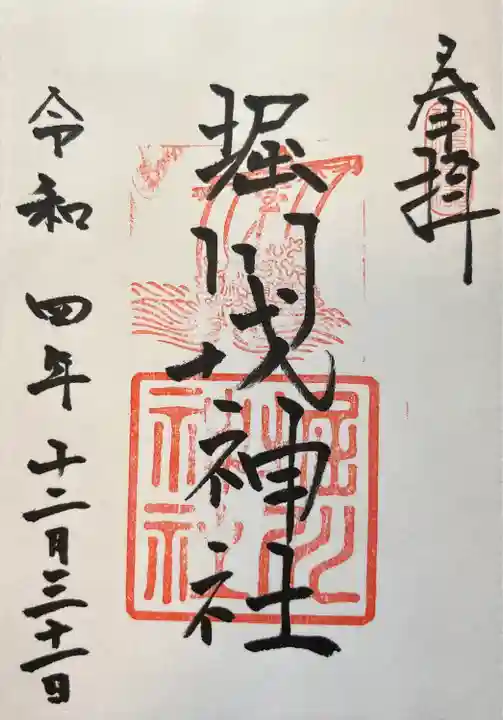 奉拝
堀川戎神社
令和四年十二月三十一日